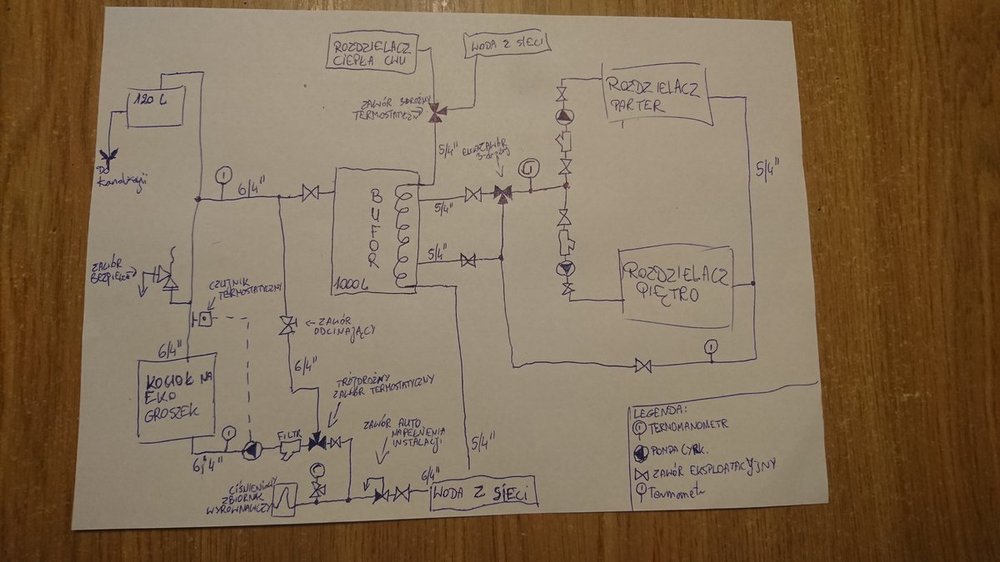 ROZDZIELACZ
CIEPŁA CWU
WODA Z SIECI
120 L
ZAWÓR 3DROŻNY
TERMOSTATYCZNY
ROZDZIELACZ
PARTER
DO
Kanalizacji
6/4"
5/4"
5/4"
5/4"
5/4"
BUFOR
1000 L
ZAWÓR
BEZPIECZ.
CZUJNIK
TERMOSTATYCZNY
ROZDZIELACZ
PIĘTRO
← ZAWÓR
ODCINAJĄCY
6/4"
6/4"
KOCIOŁ NA
EKO
GROSZEK
TRÓJDROŻNY
ZAWÓR TERMOSTATYCZNY
FILTR
ZAWÓR AUTO
NAPEŁNENIA
INSTALACJI
5/4"
6/4"
6/4"
WODA Z SIECI
CIŚNIENIOWY
ZBIORNIK
WYRÓWNAWCZY
LEGENDA:
TERMOMANOMETR
POMPA CYRK.
ZAWÓR EKSPLOATACYJNY
Termometr